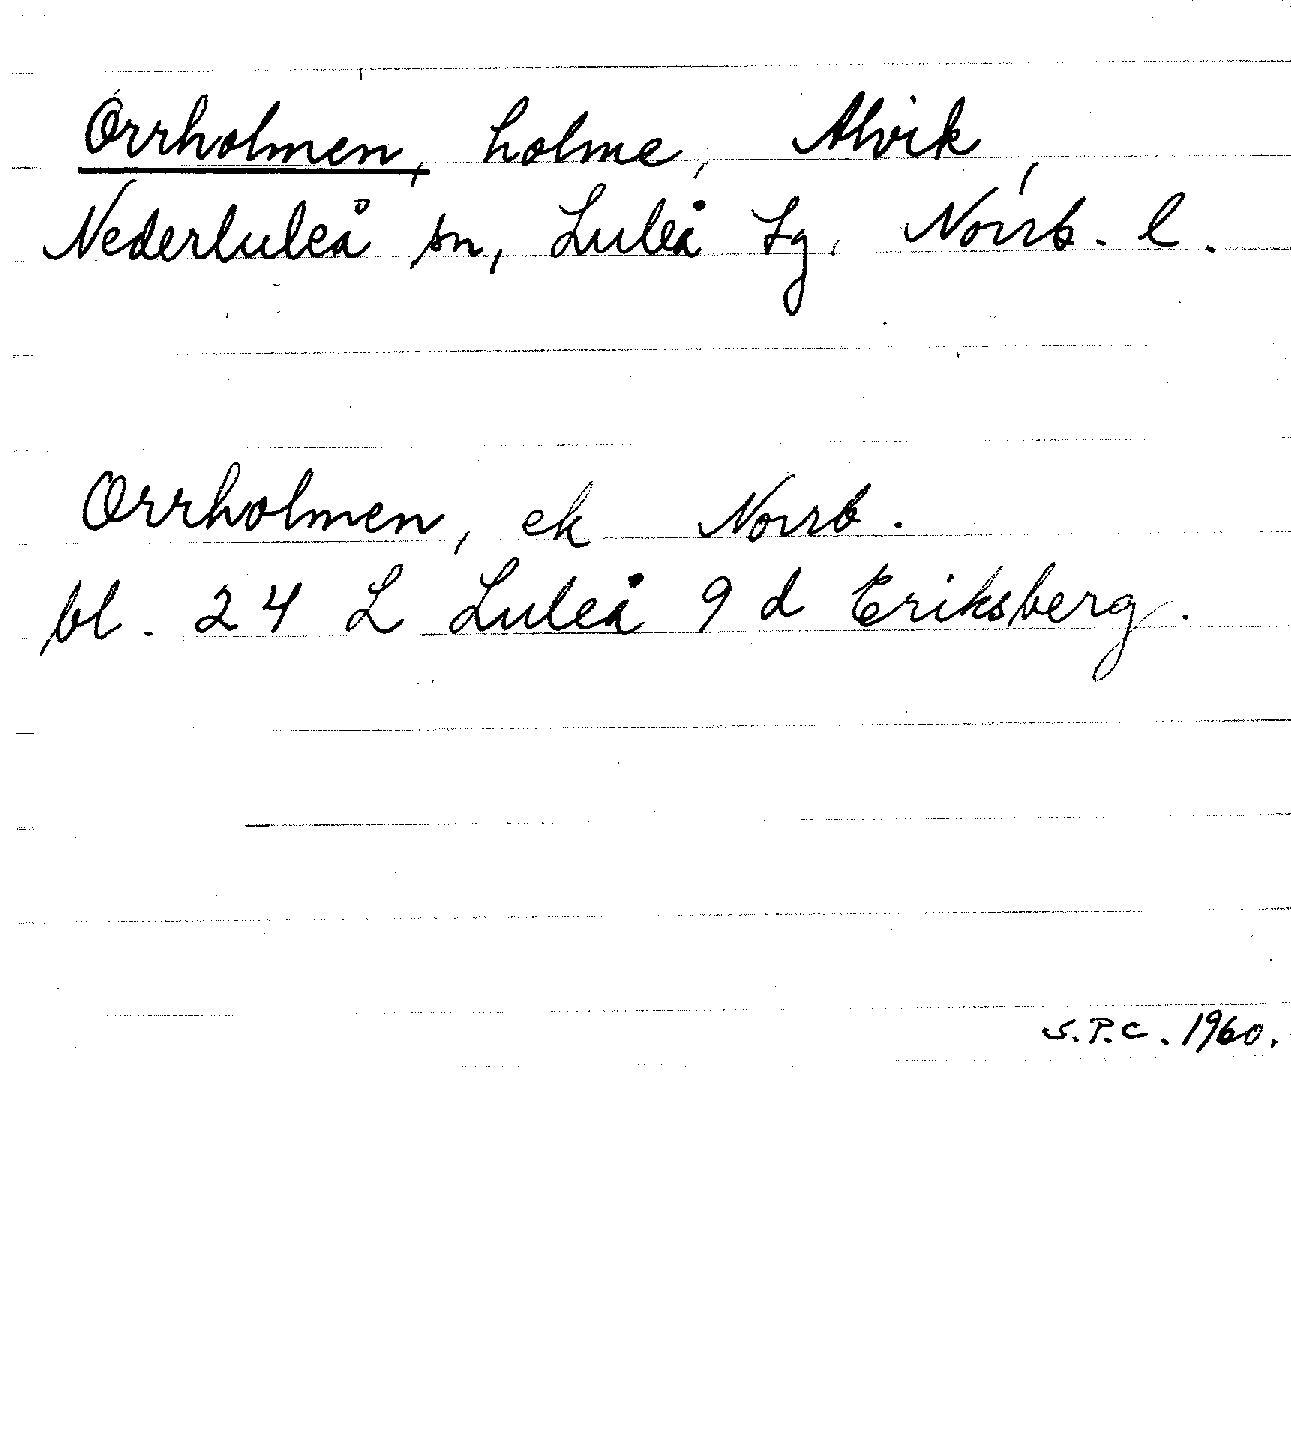 Orrholmen, holme, Alvik,
Nederluleå sn, Luleå tg, Norrb. l.
Orrholmen, ek Norrb.
bl. 24 L Luleå 9 d Eriksberg.
S.P.C. 1960.